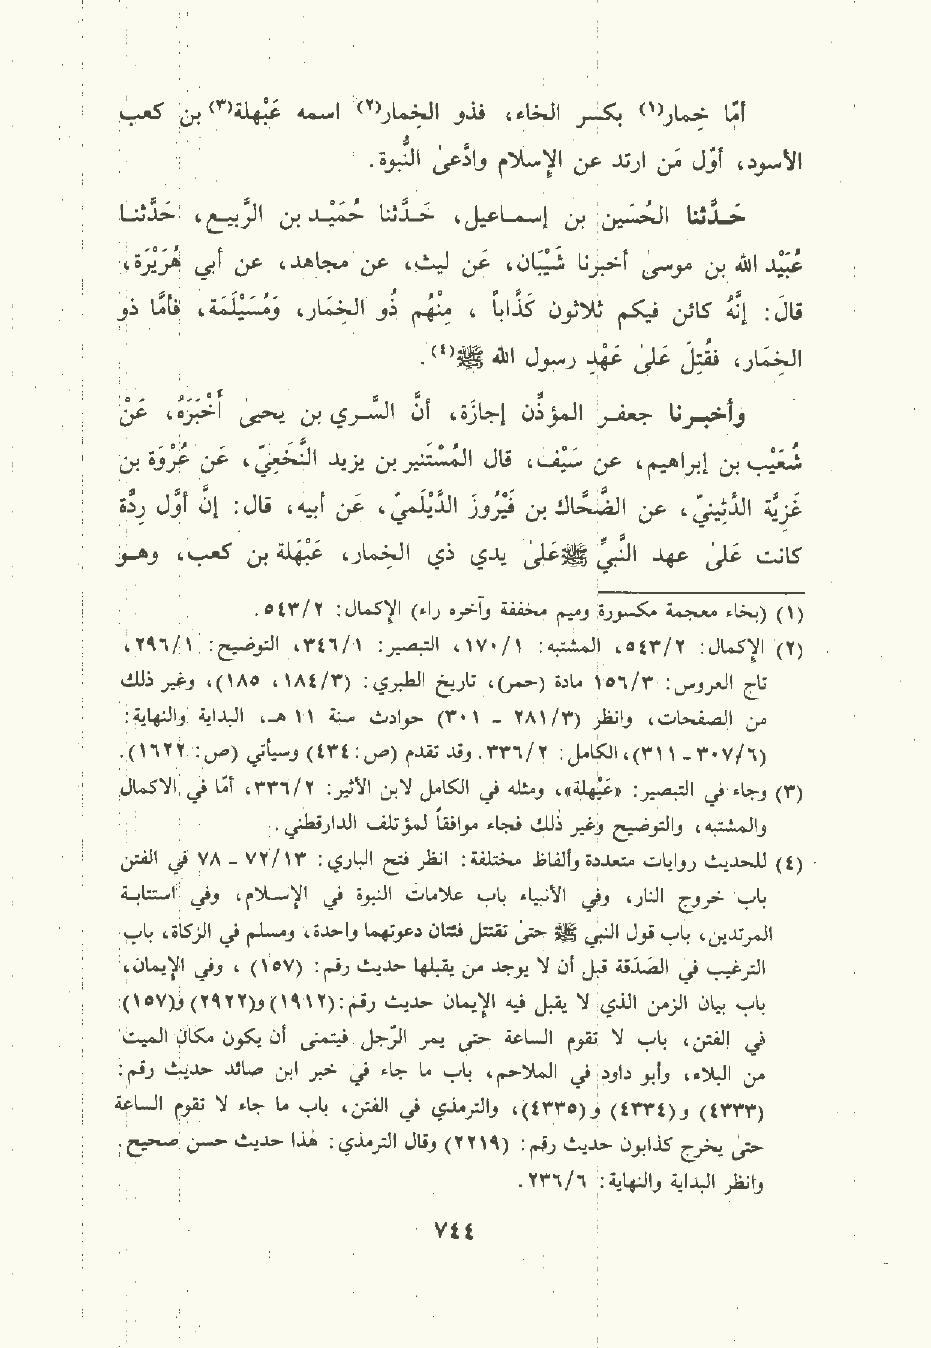 أمّا خِمار(١) بكسر الخاء، فذو الخِمار(٢) اسمه عَبْهلة(٣) بن كعب
الأسود، أوّل مَن ارتد عن الإسلام وادَّعىٰ النُّبوة.
حَـدَّثنا الحُسَين بن إسماعيل، حَدَّثنا حُمَيْد بن الرَّبيع، حَدَّثنا
عُبَيْد الله بن موسىٰ أخبرنا شَيْبَان، عَن ليث، عن مجاهد، عن أبي هُرَيْرَة،
قالَ: إنَّهُ كائن فيكم ثلاثون كَذَّاباً ، مِنْهُم ذُو الخِمَار، وَمُسَيْلَمَة، فأمَّا ذو
الخِمَار، فقُتِلَ عَلىٰ عَهْدِ رسول الله ﷺ(٤).
وأخبـرنا جعفـر المؤذِّن إجَازَة، أنَّ السَّـري بن يحيىٰ أخْبَرَهُ، عَنْ
شُعَيْب بن إبراهيم، عن سَيْف، قال المُسْتَنير بن يزيد النَّخَعِيّ، عَن عُرْوَة بن
غَزِيَّة الدَّثِينيّ، عن الضَّحَّاك بن فَيْرُوزَ الدَّيْلَميّ، عَن أبيه، قال: إنَّ أوَّل رِدَّة
كانت عَلىٰ عهد النَّبيِّ ﷺ عَلىٰ يدي ذي الخِمار، عَبْهَلة بن كعب، وهـو
(١) (بخاء معجمة مكسورة وميم مخففة وآخره راء) الإكمال: ٥٤٣/٢.
(٢) الإكمال: ٥٤٣/٢، المشتبه: ١٧٠/١، التبصير: ٣٤٦/١، التوضيح: ٢٩٦/١،
تاج العروس: ١٥٦/٣ مادة (حمر)، تاريخ الطبري: (١٨٤/٣ ، ١٨٥)، وغير ذلك
من الصفحات، وانظر (٢٨١/٣ - ٣٠١) حوادث سنة ١١ هـ، البداية والنهاية:
(٣٠٧/٦ - ٣١١)، الكامل: ٣٣٦/٢. وقد تقدم (ص: ٤٣٤) وسيأتي (ص: ١٦٢٢).
(٣) وجاء في التبصير: «عَيْهلة»، ومثله في الكامل لابن الأثير: ٣٣٦/٢، أمّا في الاكمال
والمشتبه، والتوضيح وغير ذلك فجاء موافقاً لمؤتلف الدارقطني.
(٤) للحديث روايات متعددة وألفاظ مختلفة: انظر فتح الباري: ٧٢/١٣ - ٧٨ في الفتن
باب خروج النار، وفي الأنبياء باب علامات النبوة في الإسلام، وفي استتابة
المرتدين، باب قول النبي ﷺ حتىٰ تقتتل فئتان دعوتهما واحدة، ومسلم في الزكاة، باب
الترغيب في الصَدقة قبل أن لا يوجد من يقبلها حديث رقم: (١٥٧) ، وفي الإيمان،
باب بيان الزمن الذي لا يقبل فيه الإيمان حديث رقم:(١٩١٢)و(٢٩٢٢)و(١٥٧)
في الفتن، باب لا تقوم الساعة حتى يمر الرّجل فيتمنى أن يكون مكان الميت
من البلاء، وأبو داود في الملاحم، باب ما جاء في خبر ابن صائد حديث رقم:
(٤٣٣٣) و(٤٣٣٤) و(٤٣٣٥)، والترمذي في الفتن، باب ما جاء لا تقوم الساعة
حتىٰ يخرج كذابون حديث رقم: (٢٢١٩) وقال الترمذي: هٰذا حديث حسن صحيح.
وانظر البداية والنهاية: ٢٣٦/٦.
٧٤٤